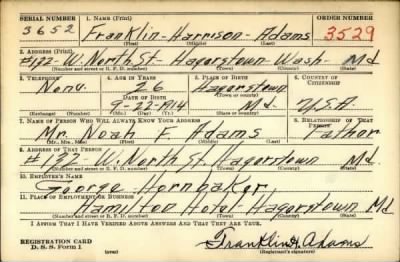 SERIAL NUMBER 1. NAME (Print) ORDER NUMBER
3652 Franklin - Harrison - Adams 3529
(First) (Middle) (Last)
2. ADDRESS (Print)
#132 - W. North St - Hagerstown Wash - Md
(Number and street or R. F. D. number) (Town) (County) (State)
3. TELEPHONE 4. AGE IN YEARS 5. PLACE OF BIRTH 6. COUNTRY OF CITIZENSHIP
None 26 Hagerstown
DATE OF BIRTH (Town or county)
9-22-1914 Md. U.S.A.
(Exchange) (Number) (Mo.) (Day) (Yr.) (State or country)
7. NAME OF PERSON WHO WILL ALWAYS KNOW YOUR ADDRESS 8. RELATIONSHIP OF THAT PERSON
Mr. Noah F. Adams Father
(Mr., Mrs., Miss) (First) (Middle) (Last)
9. ADDRESS OF THAT PERSON
#132 W. North St. Hagerstown Md.
(Number and street or R. F. D. number) (Town) (County) (State)
10. EMPLOYER'S NAME
George Hornbaker
11. PLACE OF EMPLOYMENT OR BUSINESS
Hamilton Hotel - Hagerstown Md
(Number and street or R. F. D. number) (Town) (County) (State)
I AFFIRM THAT I HAVE VERIFIED ABOVE ANSWERS AND THAT THEY ARE TRUE.
REGISTRATION CARD
D. S. S. Form 1 Franklin H. Adams
(Registrant's signature)